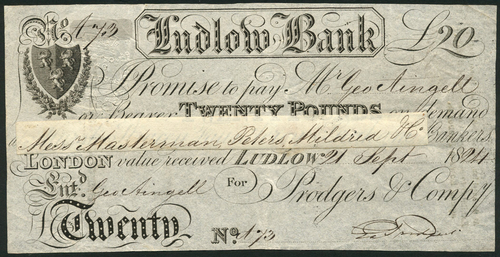 No. 173 Ludlow Bank £20
I Promise to pay Mr. Geo Aingell
or Bearer TWENTY POUNDS on demand
Messrs Masterman, Peters, Mildred & Co. Bankers,
LONDON value received LUDLOW 21 Sept 1824
Entd. Geo Aingell For Prodgers & Compy.
Twenty No. 173